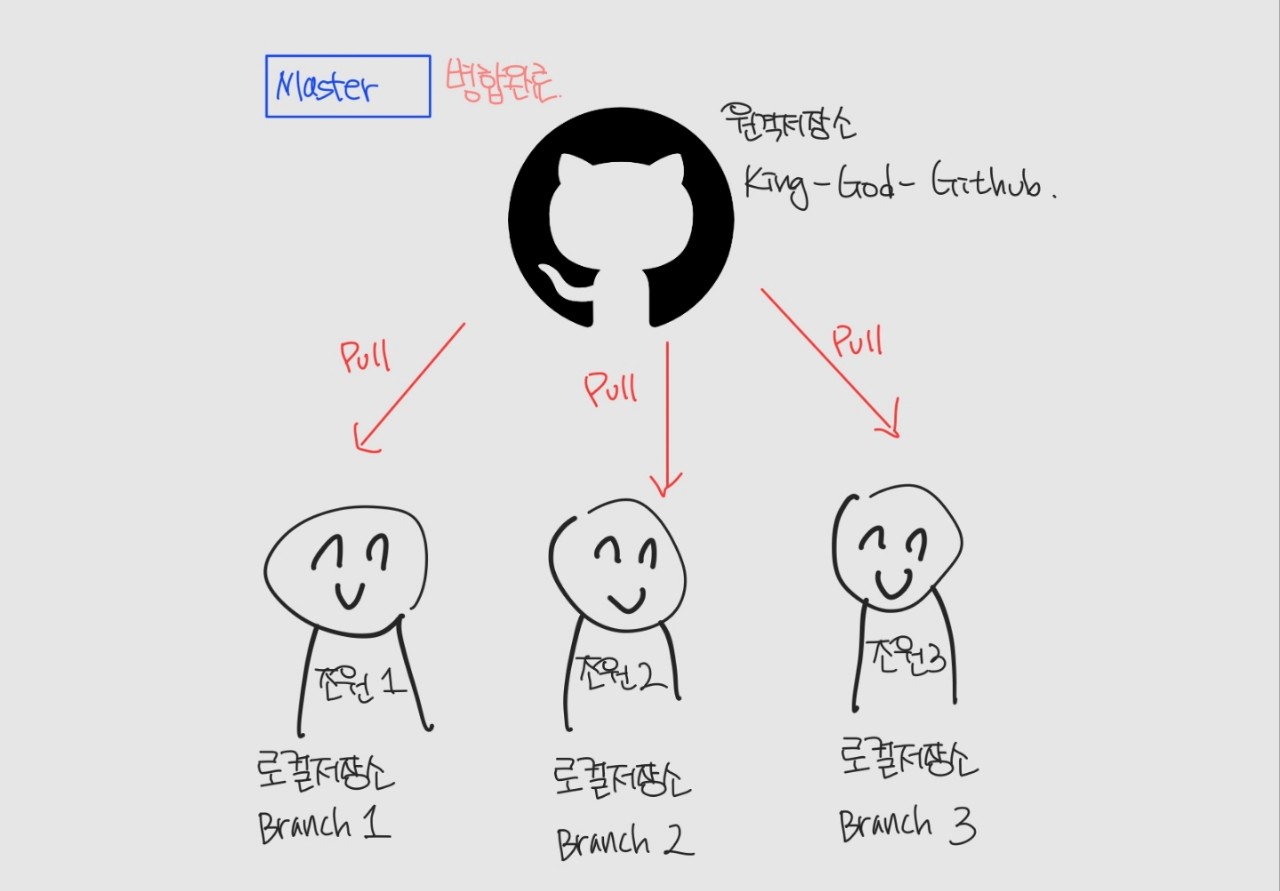 Master
병합완료.
원격저장소
King-God-Github.
Pull
Pull
Pull
조원 1
조원 2
조원 3
로컬저장소
Branch 1
로컬저장소
Branch 2
로컬저장소
Branch 3